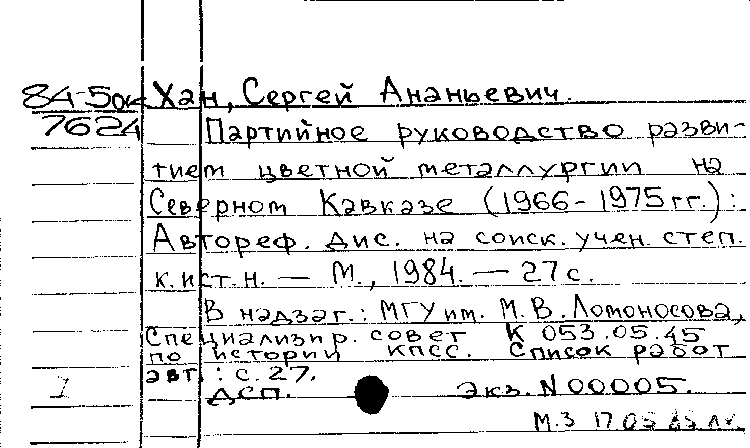 84-5ок Хан, Сергей Ананьевич.
7624 Партийное руководство разви-
тием цветной металлургии на
Северном Кавказе (1966-1975 гг.):
Автореф. дис. на соиск. учен. степ.
к. ист. н. — М., 1984. — 27 с.
В надзаг.: МГУ им. М. В. Ломоносова,
Специализир. совет К 053.05.45
по истории КПСС. Список работ
авт.: с. 27.
1 ДСП. Экз. N 00005.
М.З 17.05.85